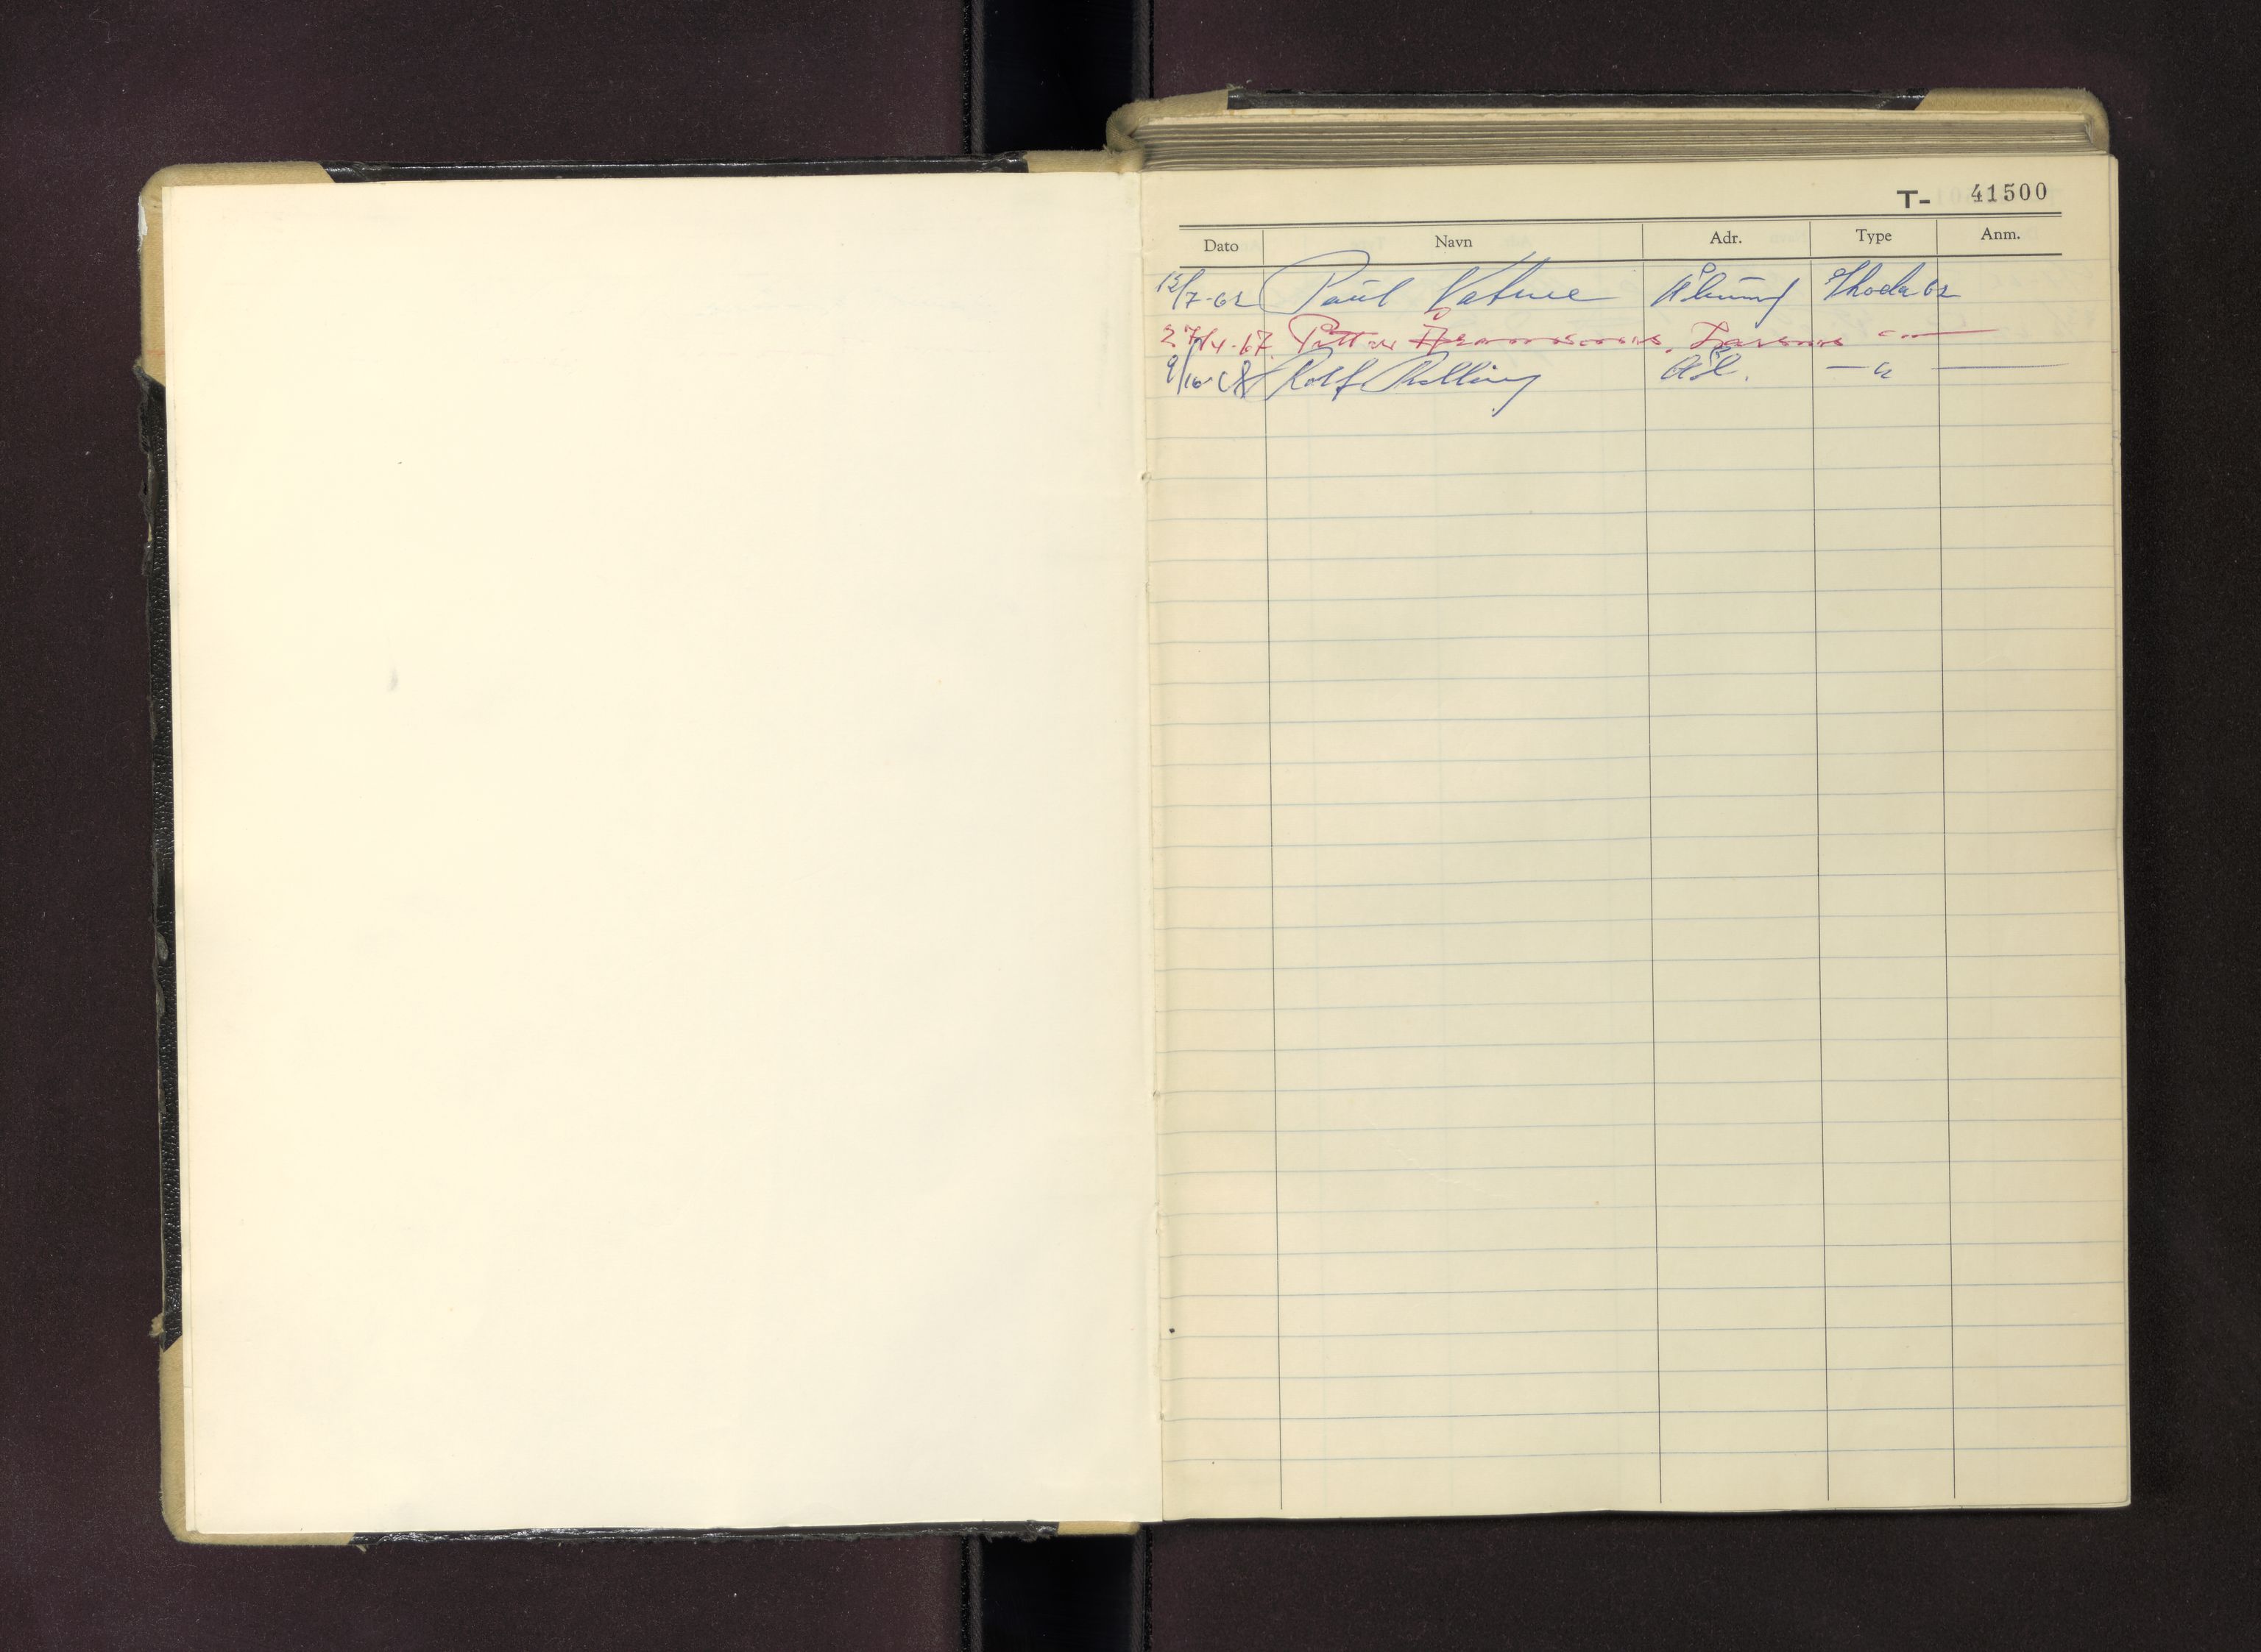 T- 41500
Dato Navn Adr. Type Anm.
12/7-62 Paul Vatne Ålesund Skoda 62
27/4-67 Petter
9/10-68 Rolf Ål. — " —